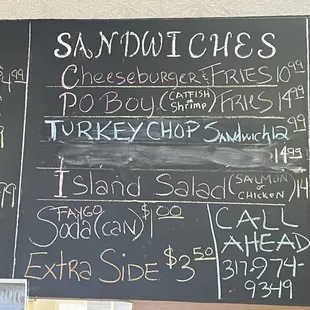 SANDWICHES
Cheeseburger & FRIES 10.99
PO BOY (CATFISH or Shrimp) FRIES 14.99
TURKEY CHOP Sandwich 12.99
14.99
Island Salad (SALMON or CHICKEN) 14
FAYGO
Soda (CAN) $1.00
Extra Side $3.50
CALL
AHEAD
317-974-
9349